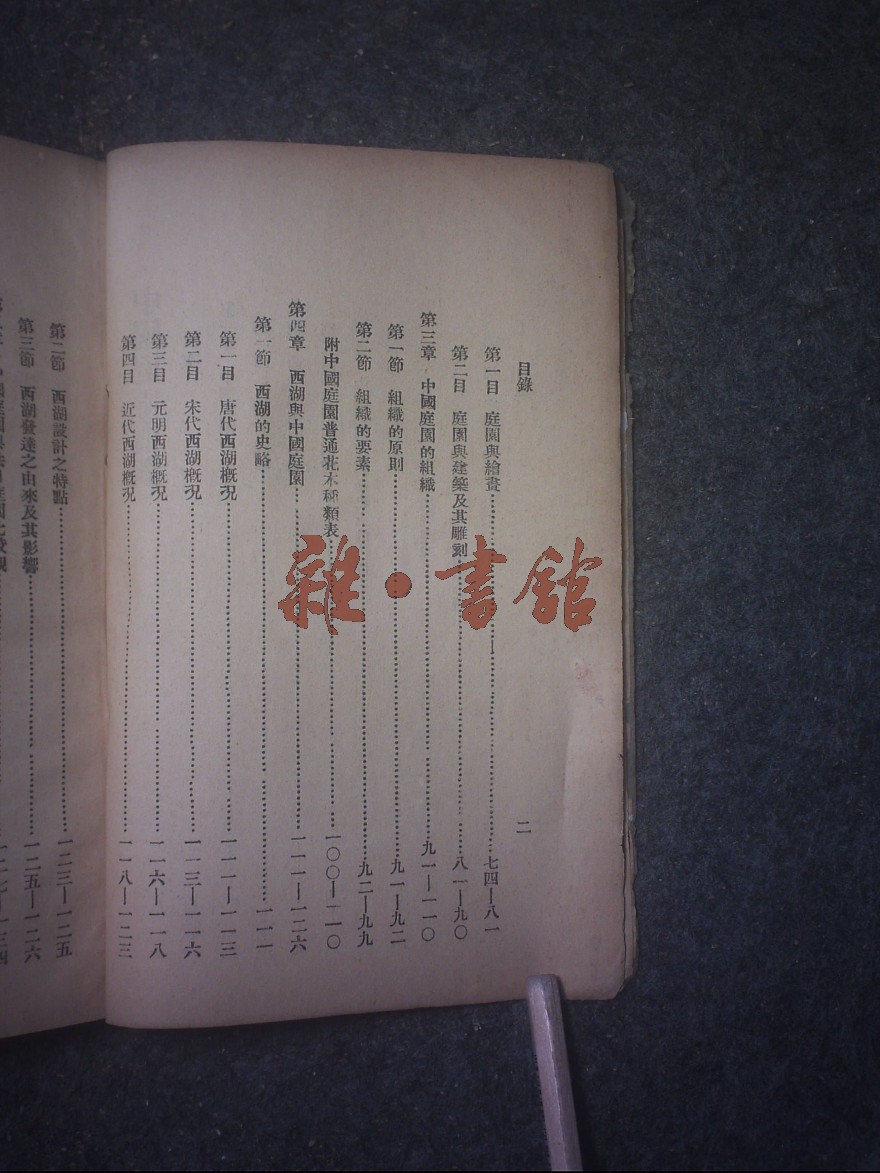 目錄
二
第一目 庭園與繪畫……七四—八一
第二目 庭園與建築及其雕刻……八一—九〇
第三章 中國庭園的組織……九一—一一〇
第一節 組織的原則……九一—九二
第二節 組織的要素……九二—九九
附中國庭園普通花木種類表……一〇〇—一一〇
第四章 西湖與中國庭園……一一一—一二六
第一節 西湖的史略……一一一
第一目 唐代西湖概况……一一一—一一三
第二目 宋代西湖概况……一一三—一一六
第三目 元明西湖概况……一一六—一一八
第四目 近代西湖概况……一一八—一二三
第二節 西湖設計之特點……一二三—一二五
第三節 西湖發達之由來及其影響……一二五—一二六
雜·書館